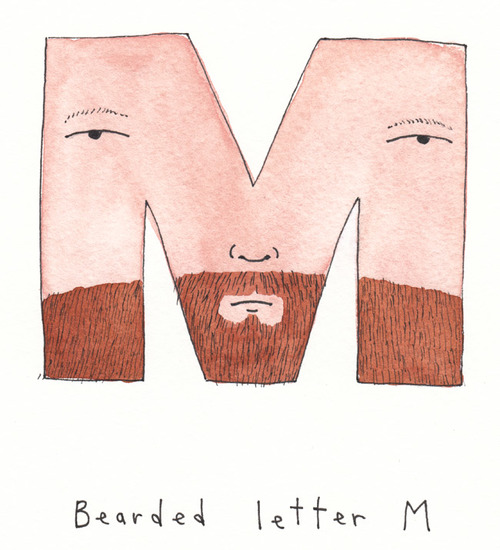 M
Bearded letter M